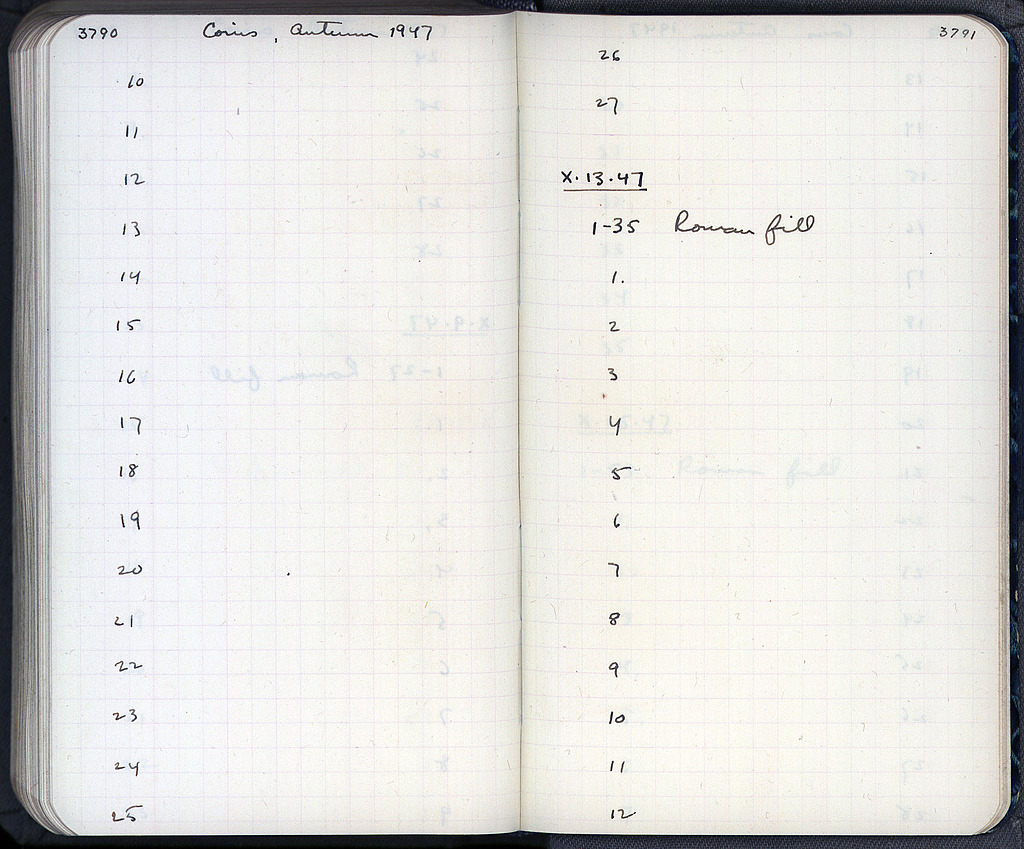 3790 Coins, Autumn 1947
10
11
12
13
14
15
16
17
18
19
20
21
22
23
24
25
3791
26
27
X.13.47
1-35 Roman fill
1.
2
3
4
5
6
7
8
9
10
11
12